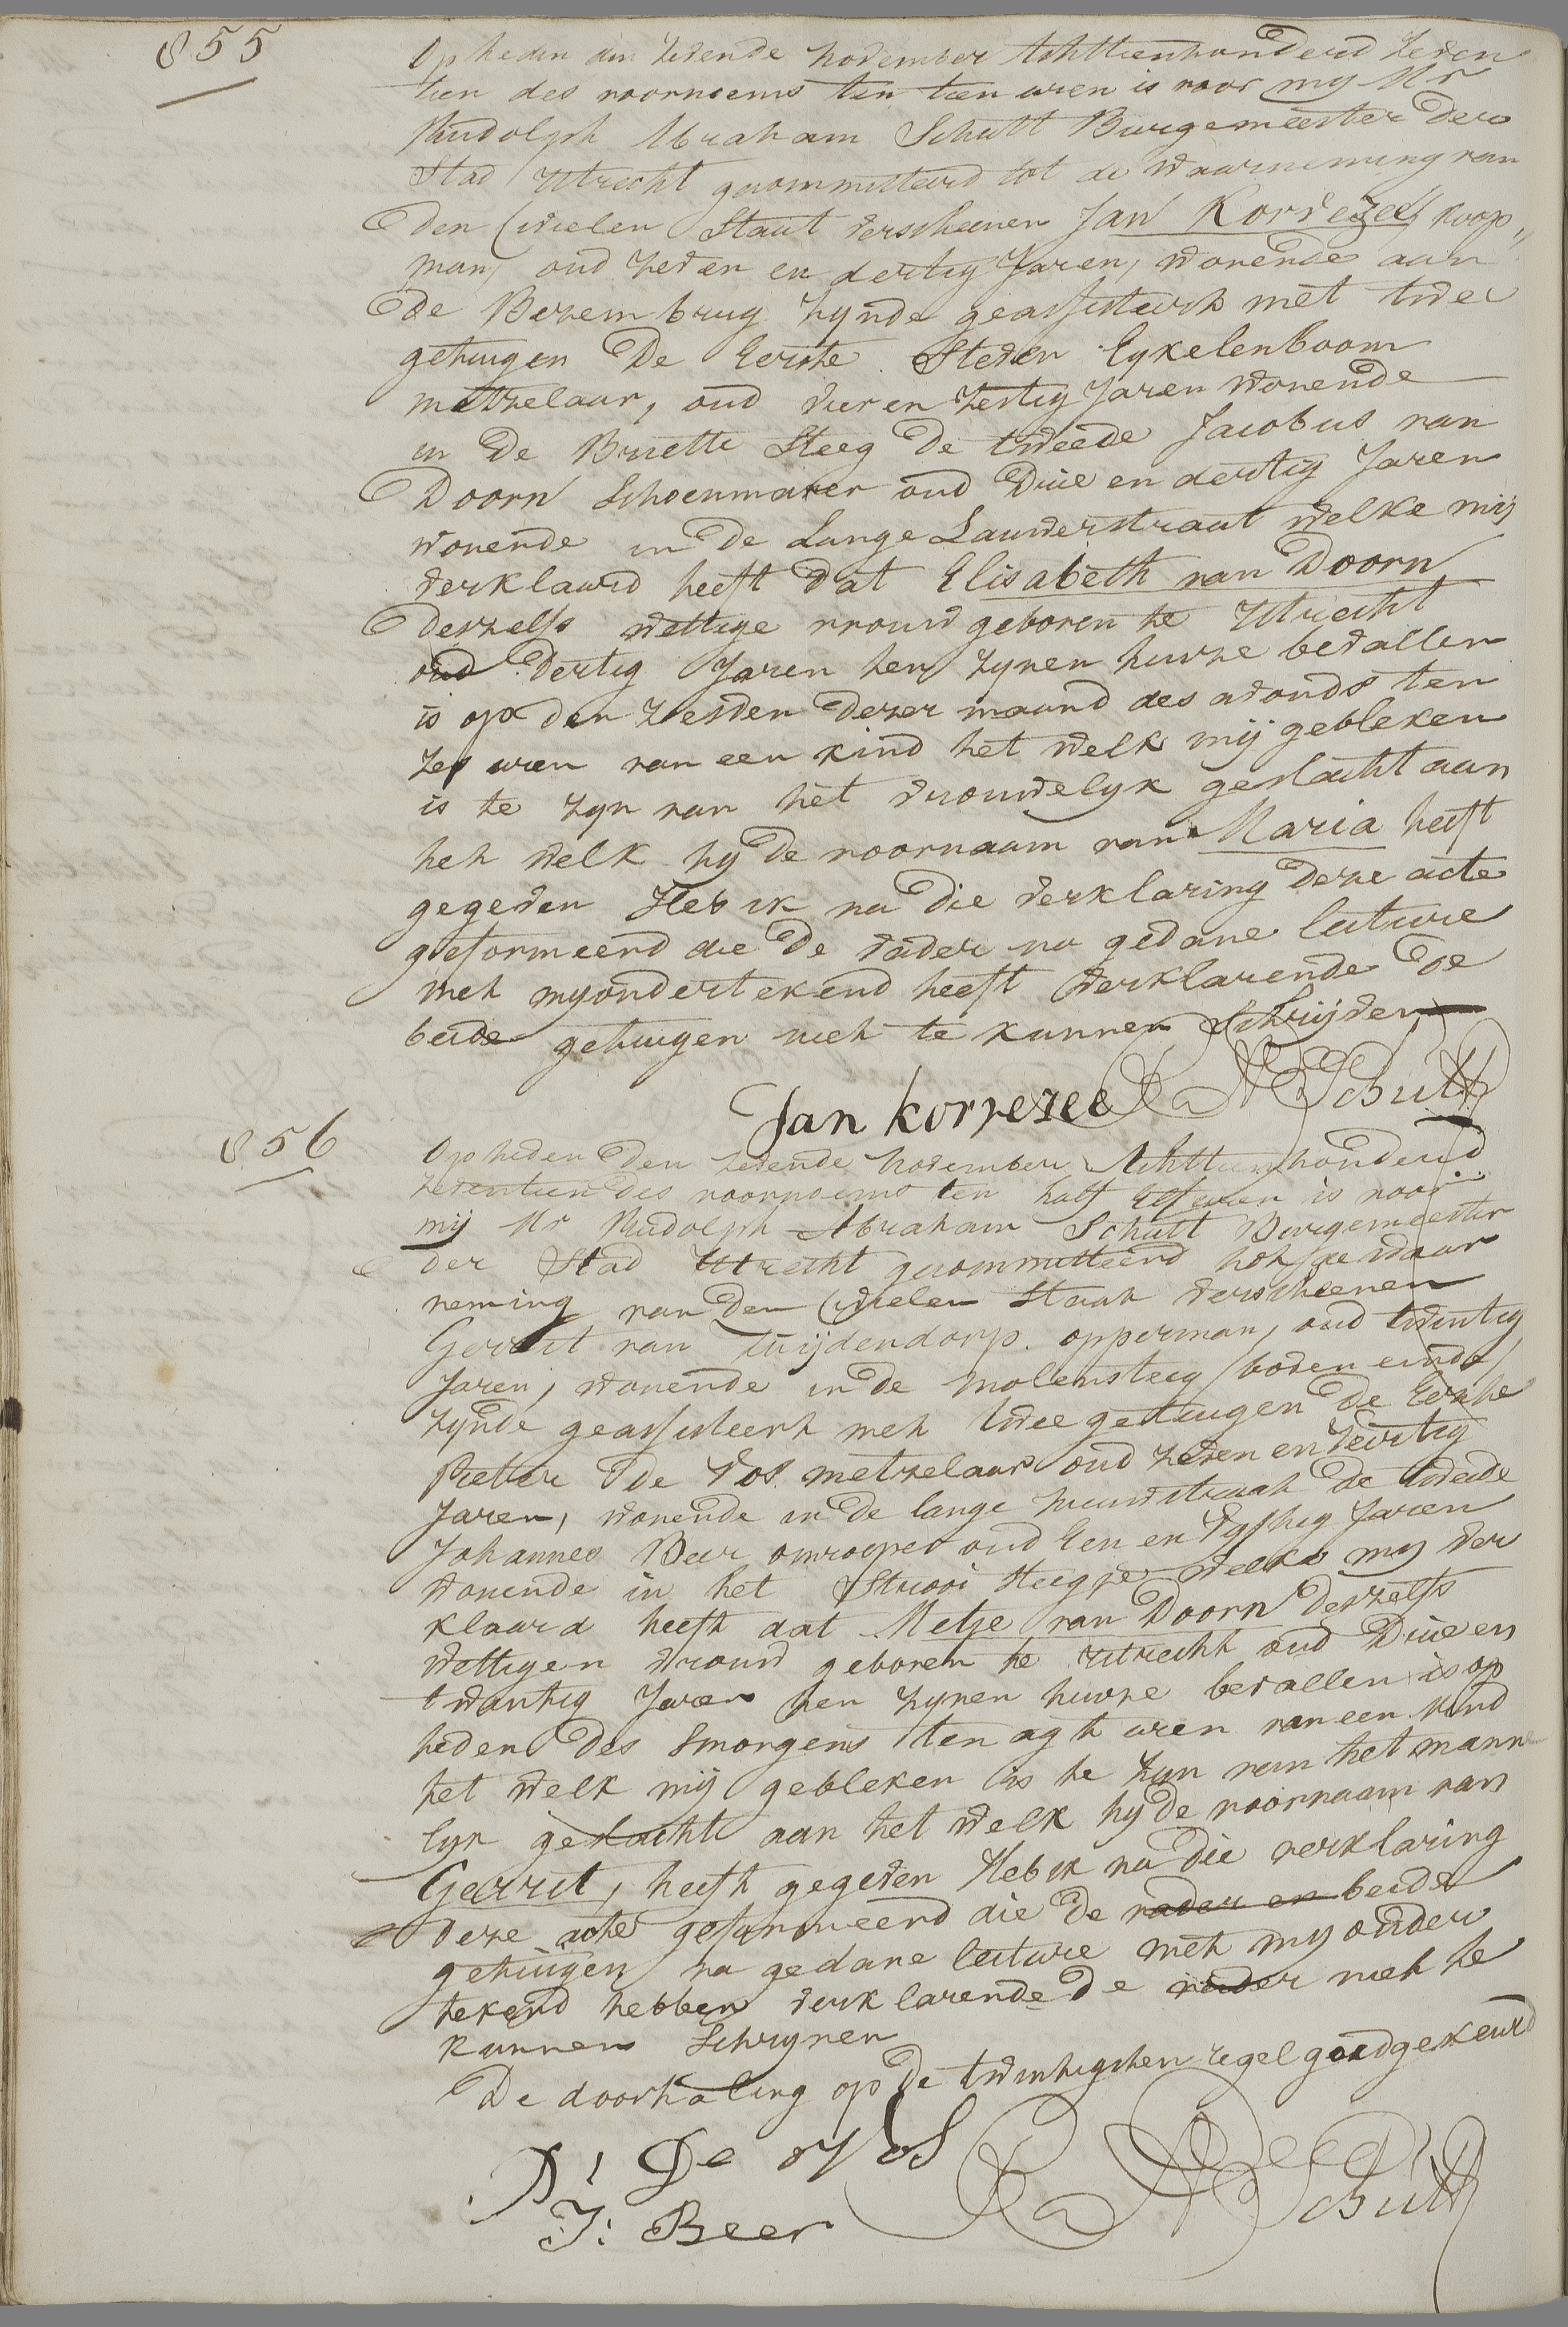 855
Op heden den zevende november Achttienhonderd zeven
tien des voornoems ten tien uren is voor my Mr
Rudolph Abraham Schutt Burgemeester der
Stad Utrecht gecommitteerd tot de waarneming van
den Civielen Staat verscheenen Jan Korvezee, koop„
man, oud zeven en dertig Jaren, wonende aan
de Bezembrug zynde geassisteerd met twee
getuigen De Eerste Steven Eykelenboom
metzelaar, oud vier en zestig Jaren wonende
in De Bruetti Steeg De tweede Jacobus van
Doorn Schoenmaker oud Drie en dertig Jaren
wonende in De Lange Lauwerstraat welke mij
verklaard heeft dat Elisabeth van Doorn
deszelfs wettige vrouw geboren te Utrecht
oud Dertig Jaren ten zynen huize bevallen
is op den zesden dezer maand des avonds ten
zes uren van een kind het welk mij gebleken
is te zyn van het vrouwelyk geslacht aan
het welk hy De voornaam van Maria heeft
gegeven Heb ik na Die verklaring Deze acte
geformeerd die De vader na gedane lecture
met my ondertekend heeft verklarende De
beide getuigen niet te kunnen Schrijven
Jan korvezee RA Schutt
856
Op heden Den zevende November Achttienhonderd
zeventien Des voornoems ten half Elf uren is voor
mij Mr Rudolph Abraham Schutt Burgemeester
der Stad Utrecht gecommitteerd tot de waar
neming van Den Civielen Staat verscheenen
Gerrit van Zuijdendorp opperman, oud twintig
Jaren, wonende in de molensteeg boven eind
zynde geassisteert met twee getuigen De Eerste
Pieter De Vos metzelaar oud zeven en Veertig
Jaren, wonende in De lange nieuwstraat De tweede
Johannes Beer omroeper oud Een en Vyftig Jaren
wonende in het Strooi Steegje welke my ver
klaard heeft dat Metje van Doorn Deszelfs
wettigen Vrouw geboren te Utrecht oud Drie en
twantig Jaren ten zynen huize bevallen is op
heden Des Smorgens ten agt uren van een kind
het welk mij gebleken is te zyn van het manne
lyk geslacht aan het welk hy De voornaam van
Gerrit, heeft gegeven Heb ik na die verklaring
deze acte geformeerd die De vader en beide
getuigen na gedane lecture met my onder
tekend hebben verklarende De vader niet te
kunnen Schryven
De doorhaling op De twintigsten regel goedgekeurd
P: De Vos RA Schutt
J: Beer